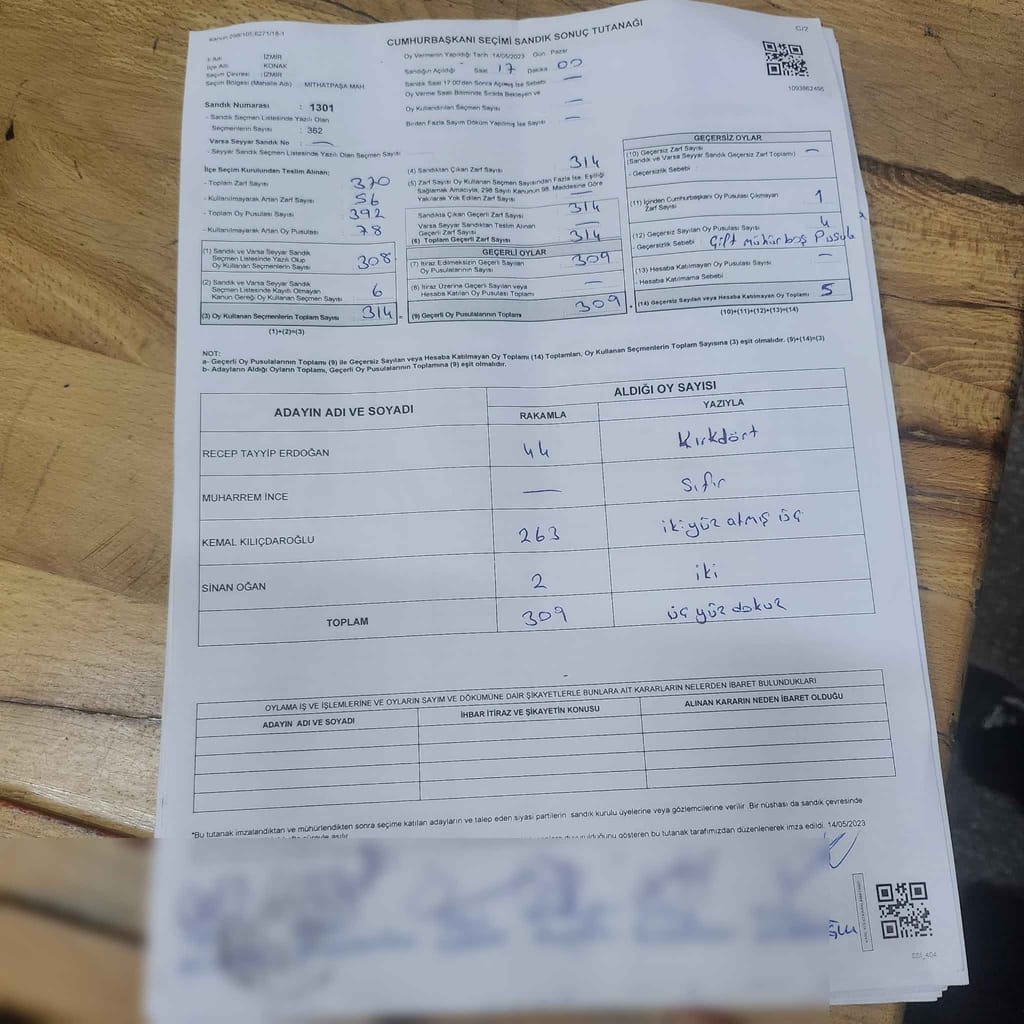 Kanun 298/105,6271/18-1
CUMHURBAŞKANI SEÇİMİ SANDIK SONUÇ TUTANAĞI
İl Adı : İZMİR
İlçe Adı : KONAK
Seçim Çevresi : İZMİR
Seçim Bölgesi (Mahalle Adı) : MİTHATPAŞA MAH.
Sandık Numarası : 1301
- Sandık Seçmen Listesinde Yazılı Olan
Seçmenlerin Sayısı : 362
Varsa Seyyar Sandık No : —
- Seyyar Sandık Seçmen Listesinde Yazılı Olan Seçmen Sayısı
Oy Vermenin Yapıldığı Tarih 14/05/2023 Gün Pazar
Sandığın Açıldığı Saat 17 Dakika 00
Sandık Saat 17:00'den Sonra Açılmış İse Sebebi —
Oy Verme Saati Bitiminde Sırada Bekleyen ve
Oy Kullandırılan Seçmen Sayısı —
Birden Fazla Sayım Döküm Yapılmış İse Sayısı —
1093862456
İlçe Seçim Kurulundan Teslim Alınan;
- Toplam Zarf Sayısı 370
- Kullanılmayarak Artan Zarf Sayısı 56
- Toplam Oy Pusulası Sayısı 392
- Kullanılmayarak Artan Oy Pusulası 78
(1) Sandık ve Varsa Seyyar Sandık
Seçmen Listesinde Yazılı Olup
Oy Kullanan Seçmenlerin Sayısı 308
(2) Sandık ve Varsa Seyyar Sandık
Seçmen Listesinde Kayıtlı Olmayan
Kanun Gereği Oy Kullanan Seçmen Sayısı 6
(3) Oy Kullanan Seçmenlerin Toplam Sayısı 314
(1)+(2)=(3)
(4) Sandıktan Çıkan Zarf Sayısı 314
(5) Zarf Sayısı Oy Kullanan Seçmen Sayısından Fazla İse, Eşitliği
Sağlamak Amacıyla, 298 Sayılı Kanunun 98. Maddesine Göre
Yakılarak Yok Edilen Zarf Sayısı —
Sandıkta Çıkan Geçerli Zarf Sayısı 314
Varsa Seyyar Sandıktan Teslim Alınan
Geçerli Zarf Sayısı —
(6) Toplam Geçerli Zarf Sayısı 314
GEÇERLİ OYLAR
(7) İtiraz Edilmeksizin Geçerli Sayılan
Oy Pusulalarının Sayısı 309
(8) İtiraz Üzerine Geçerli Sayılan veya
Hesaba Katılan Oy Pusulası Toplamı —
(9) Geçerli Oy Pusulalarının Toplamı 309
GEÇERSİZ OYLAR
(10) Geçersiz Zarf Sayısı —
(Sandık ve Varsa Seyyar Sandık Geçersiz Zarf Toplamı)
- Geçersizlik Sebebi
(11) İçinden Cumhurbaşkanı Oy Pusulası Çıkmayan
Zarf Sayısı 1
(12) Geçersiz Sayılan Oy Pusulası Sayısı 4
- Geçersizlik Sebebi Çift mühür boş Pusula
(13) Hesaba Katılmayan Oy Pusulası Sayısı —
- Hesaba Katılmama Sebebi
(14) Geçersiz Sayılan veya Hesaba Katılmayan Oy Toplamı 5
(10)+(11)+(12)+(13)=(14)
NOT:
a- Geçerli Oy Pusulalarının Toplamı (9) ile Geçersiz Sayılan veya Hesaba Katılmayan Oy Toplamı (14) Toplamları, Oy Kullanan Seçmenlerin Toplam Sayısına (3) eşit olmalıdır. (9)+(14)=(3)
b- Adayların Aldığı Oyların Toplamı, Geçerli Oy Pusulalarının Toplamına (9) eşit olmalıdır.
ADAYIN ADI VE SOYADI ALDIĞI OY SAYISI
RAKAMLA YAZIYLA
RECEP TAYYİP ERDOĞAN 44 Kırkdört
MUHARREM İNCE — Sıfır
KEMAL KILIÇDAROĞLU 263 ikiyüz atmış üç
SİNAN OĞAN 2 iki
TOPLAM 309 üç yüz dokuz
OYLAMA İŞ VE İŞLEMLERİNE VE OYLARIN SAYIM VE DÖKÜMÜNE DAİR ŞİKAYETLERLE BUNLARA AİT KARARLARIN NELERDEN İBARET BULUNDUKLARI
ADAYIN ADI VE SOYADI İHBAR İTİRAZ VE ŞİKAYETİN KONUSU ALINAN KARARIN NEDEN İBARET OLDUĞU
*Bu tutanak imzalandıktan ve mühürlendikten sonra seçime katılan adayların ve talep eden siyasi partilerin sandık kurulu üyelerine veya gözlemcilerine verilir .Bir nüshası da sandık çevresinde
gösteren bu tutanak tarafımızdan düzenlenerek imza edildi. 14/05/2023